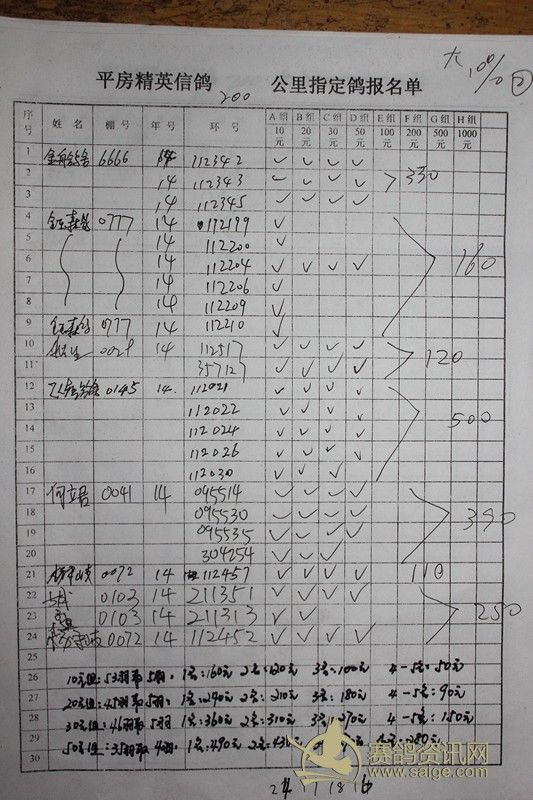 大 10% 回
平房精英信鸽 200 公里指定鸽报名单
序号 姓名 棚号 年号 环号 A组10元 B组20元 C组30元 D组50元 E组100元 F组200元 G组500元 H组1000元
1 6666 14 112342 ✓ ✓ ✓ ✓
2 14 112343 ✓ ✓ ✓ ✓ 330
3 14 112345 ✓ ✓ ✓ ✓
4 0777 14 112199 ✓
5 14 112200 ✓
6 14 112204 ✓ ✓ ✓ ✓ 160
7 14 112206 ✓
8 14 112209 ✓
9 0777 14 112210 ✓
10 14 112517 ✓ ✓ ✓ ✓ 120
11 357127 ✓ ✓ ✓ ✓
12 0145 14 112021 ✓ ✓ ✓
13 112022 ✓ ✓ ✓ ✓
14 112024 ✓ ✓ ✓ ✓ 500
15 112026 ✓ ✓ ✓ ✓
16 112030 ✓ ✓ ✓
17 何立君 0041 14 095514 ✓ ✓ ✓ ✓
18 095530 ✓ ✓ ✓ ✓
19 095535 ✓ ✓ ✓ ✓ 390
20 304254 ✓ ✓ ✓
21 0072 14 112457 ✓ ✓ ✓ ✓ 110
22 0103 14 211351 ✓ ✓ ✓ ✓
23 0103 14 211313 ✓ ✓ 250
24 0072 14 112452 ✓ ✓ ✓ ✓
25
26 10元组:53羽取5羽. 1名:160元 2名:120元 3名:100元 4-5名:50元
27 20元组:45羽取5羽. 1名:240元 2名:210元 3名:180元 4-5名:90元
28 30元组:46羽取5羽 1名:360元 2名:310元 3名:270元 4-5名:150元
29 50元组:35羽取4羽. 1名:490元 2名:430元 4名:280元
30
赛鸽资讯网
www.saige.com